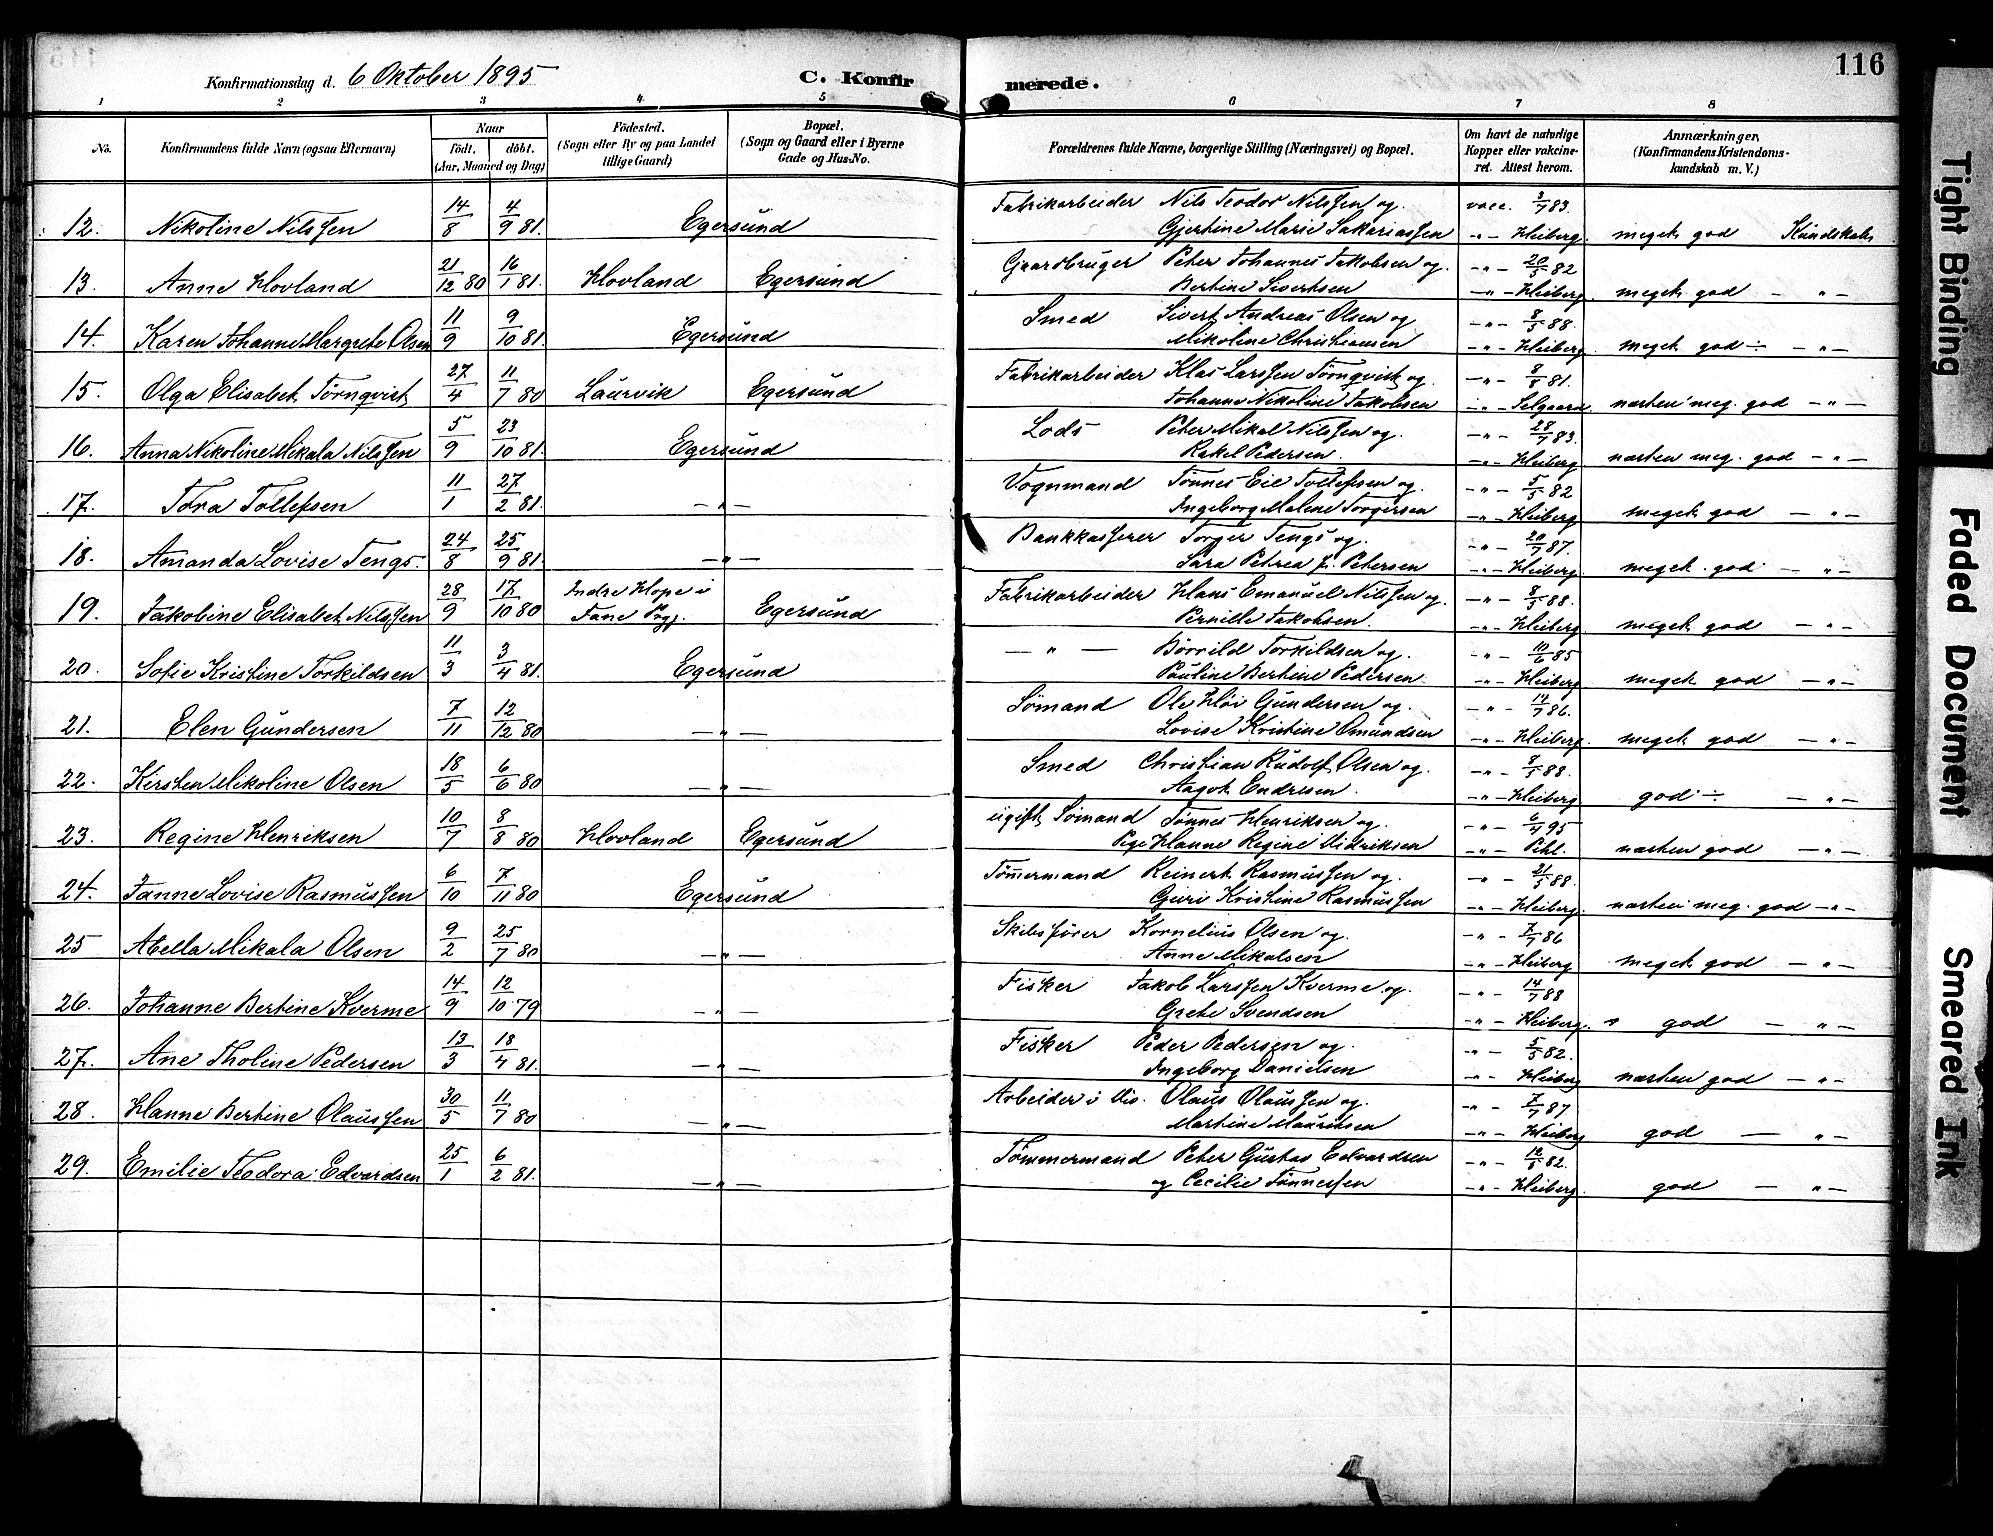 116
Konfirmationsdag d. 6 Oktober 1895 C. Konfir merede.
1 2 3 4 5 6 7 8
No. Konfirmandens fulde Navn (ogsaa Efternavn) Naar födt. döbt. (Aar, Maaned og Dag) Födested. (Sogn eller By og paa Landet tillige Gaard) Bopæl. (Sogn og Gaard eller i Byerne Gade og Hus-No. Forældrenes fulde Navne, borgerlige Stilling (Næringsvei) og Bopæl. Om havt de naturlige Kopper eller vakcineret. Attest herom. Anmærkninger, (Konfirmandens Kristendomskundskab m. V.)
12. Nikoline Nilssen 14/8 4/9 81. Egersund Fabrikarbeider Nils Teodor Nilssen og vacc. 3/7 83.
Gjertine Marie Sakariassen -"- Heiberg. meget god Kundskab
13. Anne Hovland 21/12 80 16/1 81. Hovland Egersund Gaardbruger Peter Johannes Jakobsen og -"- 20/5 82
Bertine Sivertsen -"- Heiberg. meget god -"-
14. Karen Johanne Margrete Olsen 11/9 9/10 81. Egersund Smed Sivert Andreas Olsen og -"- 8/5 88.
Mikoline Christiansen -"- Heiberg. meget god ÷ -"-
15. Olga Elisabet Törnqvist 27/4 11/7 80 Laurvik Egersund Fabrikarbeider Klas Larssen Törnqvist og -"- 8/8 81.
Johanne Nikoline Jakobsen -"- Selgaard næsten meg. god -"-
16. Anna Nikoline Mikala Nilssen 5/9 23/10 81. Egersund Lods Peter Mikal Nilssen og -"- 28/7 83.
Rakel Pedersen. -"- Heiberg næsten meg. god -"-
17. Tora Tollefsen 11/1 27/2 81. -"- Vognmand Tönnes Eie Tollefsen og -"- 5/5 82
Ingeborg Malene Torgersen -"- Heiberg meget god -"-
18. Amanda Lovise Tengs. 24/8 25/9 81. -"- Bankkasserer Torger Tengs og -"- 20/7 87.
Sara Petrea f. Petersen -"- Heiberg. meget god -"-
19. Jakobine Elisabet Nilssen 28/9 17/10 80 Indre Hope i Fane Prgj. Egersund Fabrikarbeider Hans Emanuel Nilssen og -"- 8/5 88.
Pernille Jakobsen. -"- Heiberg. meget god -"-
20. Sofie Kristine Torkildsen 11/3 3/4 81. Egersund -"- Börrild Torkildsen og -"- 10/6 85
Pauline Bertine Pedersen. -"- Heiberg meget god -"-
21. Elen Gundersen 7/11 12/12 80 -"- Sömand Ole Höi Gundersen og -"- 14/7 86.
Lovise Kristine Omundsen -"- Heiberg. meget god -"-
22. Kirsten Mikoline Olsen 18/5 6/6 80 -"- Smed Christian Rudolf Olsen og -"- 8/5 88.
Aagot Endresen. -"- Heiberg god ÷ -"-
23. Regine Henriksen 10/7 8/8 80 Hovland Egersund ugift Sömand Tönnes Henriksen og -"- 6/4 95
Pige Hanne Regine Didriksen -"- Pihl. næsten god -"-
24. Janne Lovise Rasmussen 6/10 7/11 80 Egersund Tömmermand Reinert Rasmussen og -"- 21/5 88.
Guri Kristine Rasmussen -"- Heiberg. næsten meg. god -"-
25 Abella Mikala Olsen 9/2 25/7 80 -"- Skibsförer Kornelius Olsen og -"- 7/7 86
Anne Mikalsen -"- Heiberg meget god -"-
26. Johanne Bertine Kverme 14/9 12/10 79 -"- Fisker Jakob Larssen Kverme og -"- 14/7 88
Grete Svendsen -"- Heiberg. god -"-
27. Ane Tholine Pedersen 13/3 18/4 81. -"- Fisker Peder Pedersen og -"- 5/5 82.
Ingeborg Danielsen -"- Heiberg næsten god -"-
28. Hanne Bertine Olaussen 30/5 11/7 80 -"- Arbeider i Vis. Olaus Olaussen og -"- 7/7 87
Martine Mauritsen -"- Heiberg god -"-
29. Emilie Teodora Edvardsen 25/1 6/2 81. -"- Tömmermand Peter Gustav Edvardsen -"- 82.
og Cecilie Tönnessen -"- Heiberg. god -"-
Tight Binding
Faded Document
Smeared Ink